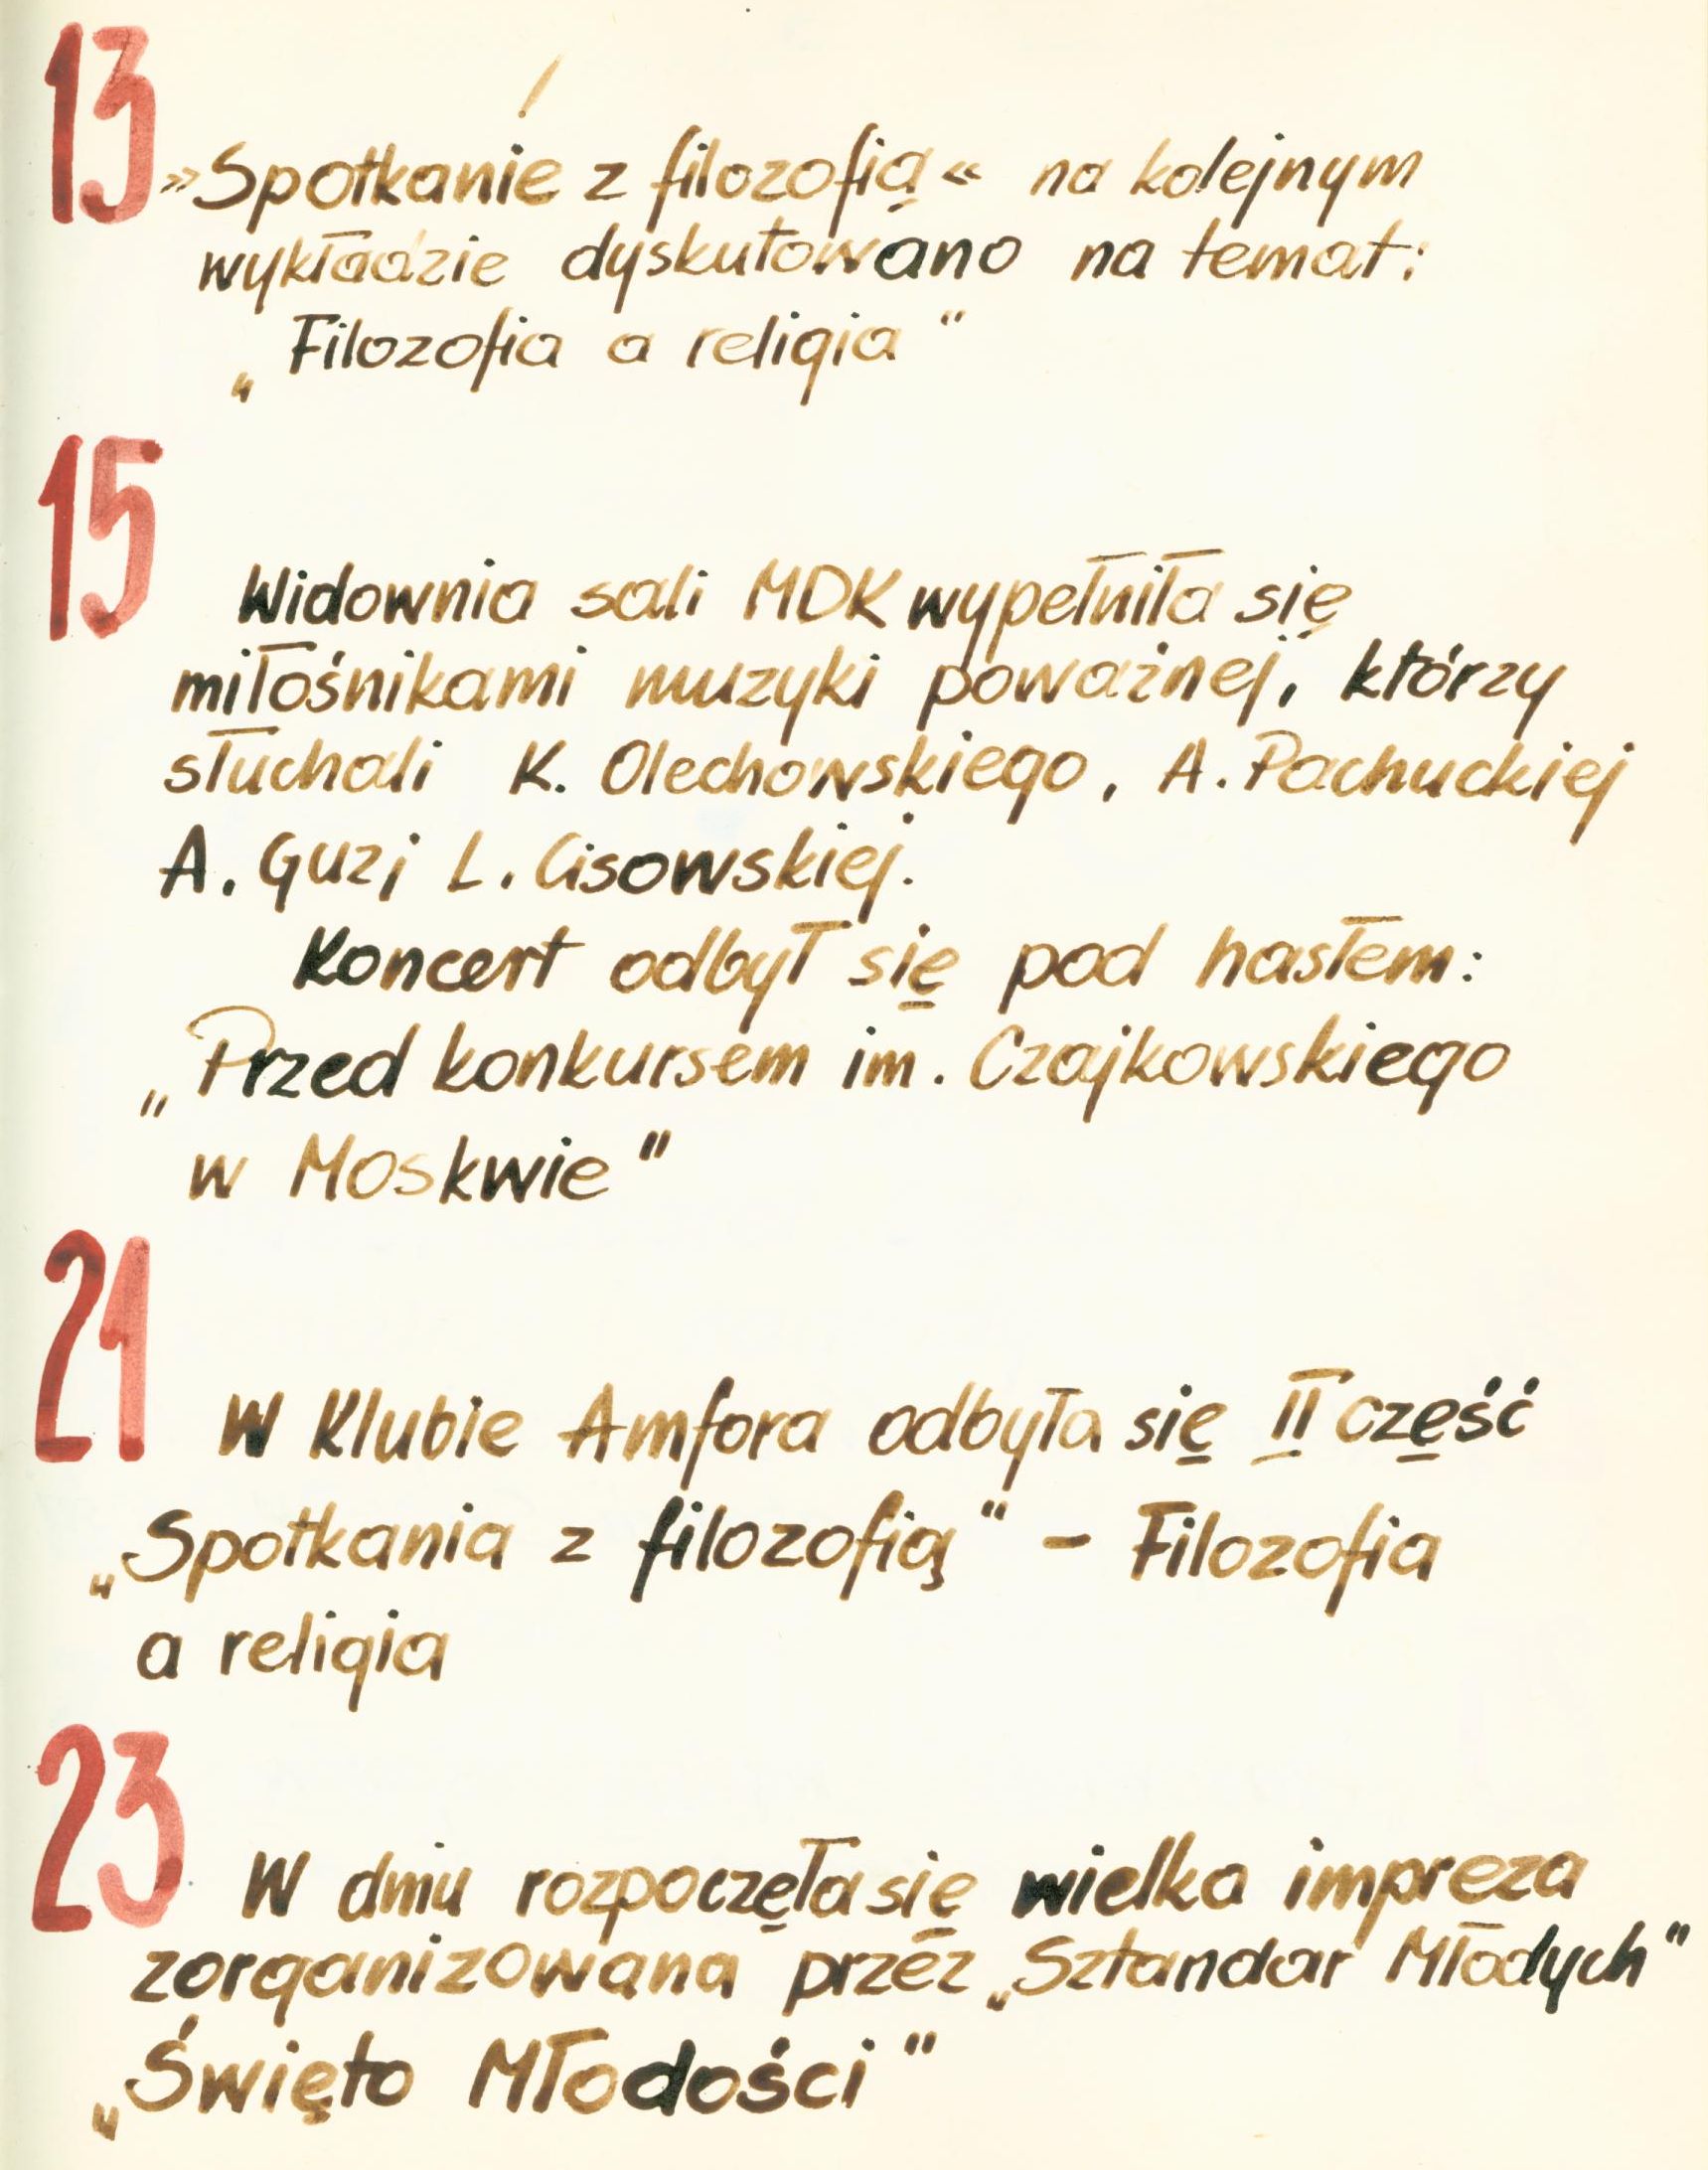 13
»Spotkanie z filozofią« na kolejnym
wykładzie dyskutowano na temat:
„Filozofia a religia"
15
Widownia sali MDK wypełniła się
miłośnikami muzyki poważnej, którzy
słuchali K. Olechowskiego, A. Pachuckiej
A. Guzi L. Cisowskiej.
Koncert odbył się pod hasłem:
„Przed konkursem im. Czajkowskiego
w Moskwie"
21
W Klubie Amfora odbyła się II część
„Spotkania z filozofią" - Filozofia
a religia
23
W dniu rozpoczęła się wielka impreza
zorganizowana przez „Sztandar Młodych"
„Święto Młodości"